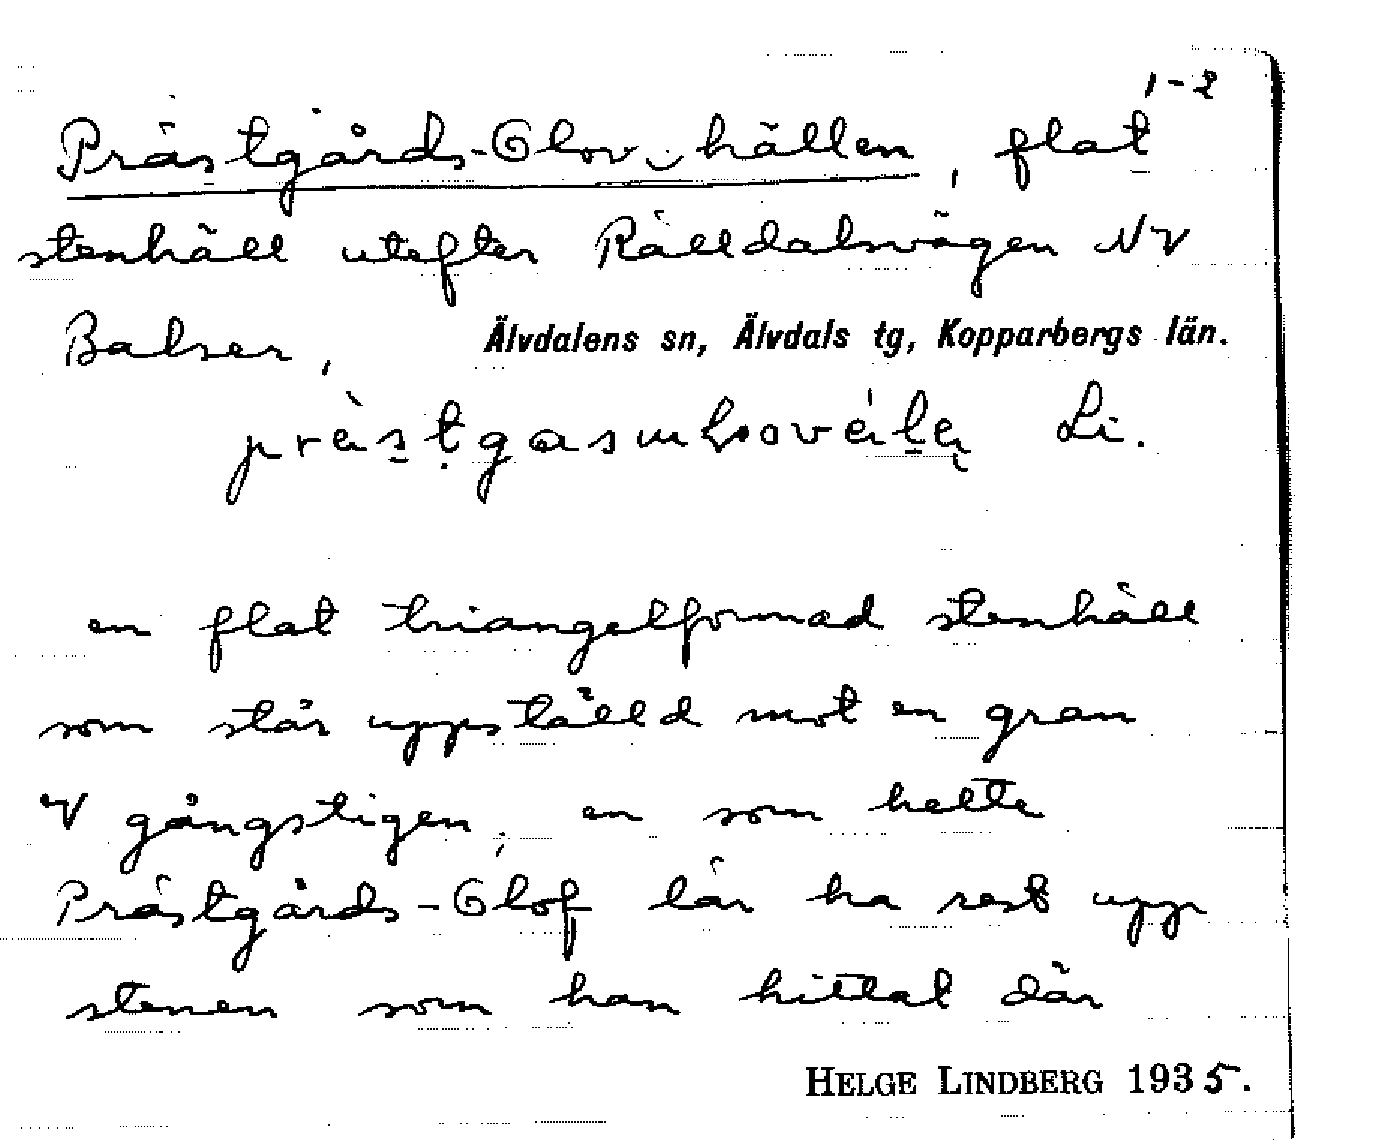 1-2
Prästgårds-Olov-hällen, flat
stenhäll utefter Rälldalsvägen NV
Balser, Älvdalens sn, Älvdals tg, Kopparbergs län.
Li.
en flat triangelformad stenhäll
som står uppställd mot en gran
V gångstigen; en som hette
Prästgårds-Olof lär ha rest upp
stenen som han hittat där
HELGE LINDBERG 1935.